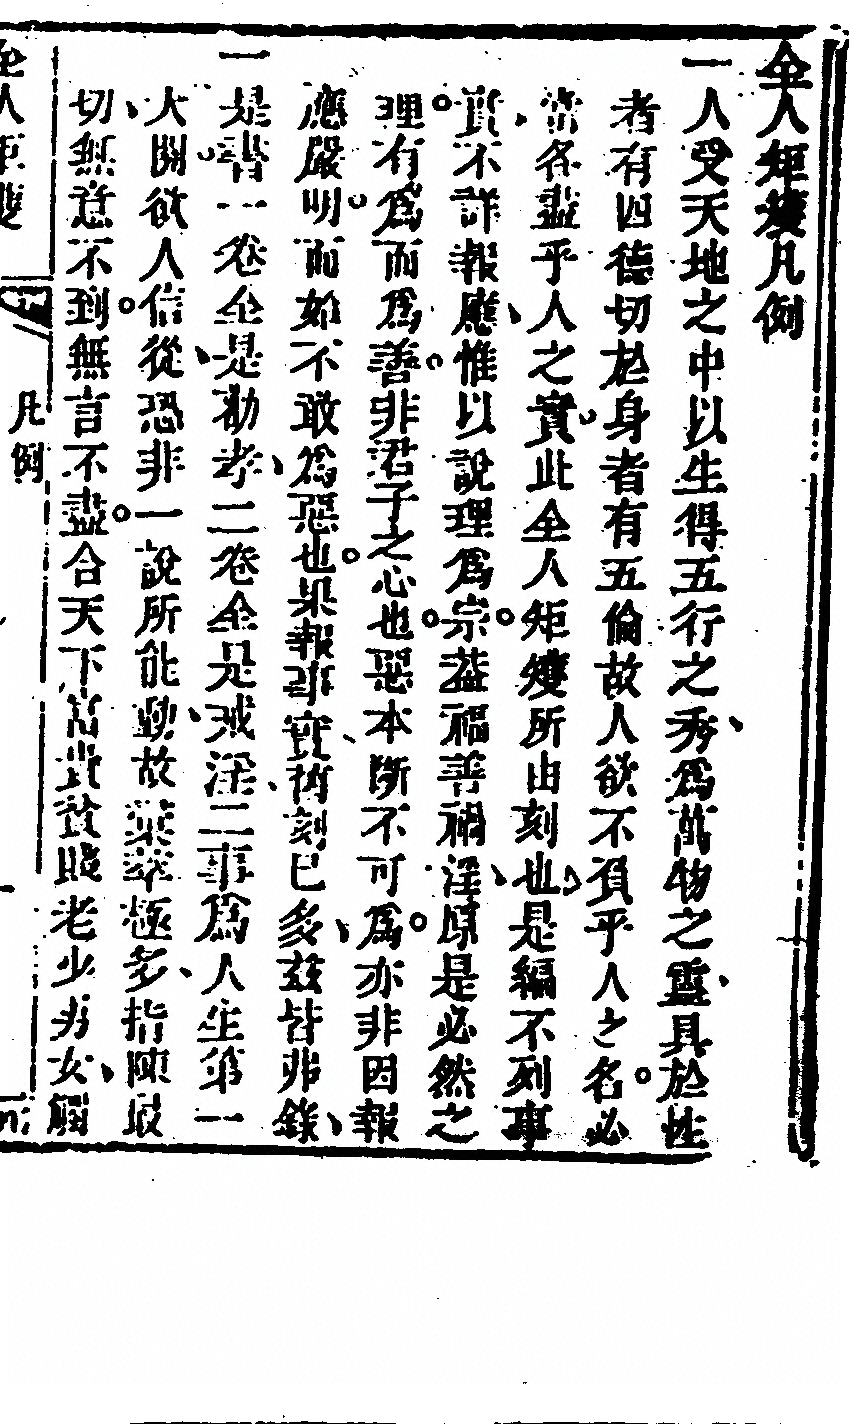 全人矩矱凡例
一人受天地之中以生得五行之秀為萬物之靈具於性
者有四德切於身者有五倫故人欲不負乎人之名必
當各盡乎人之實此全人矩矱所由刻也是編不列事
實不詳報應惟以說理為宗蓋福善禍淫原是必然之
理有為而為善非君子之心也惡本斷不可為亦非因報
應嚴明而始不敢為惡也果報事實稗刻已多茲皆弗錄
一是書一卷全是勸孝二卷全是戒淫二事為人生第一
大關欲人信從恐非一說所能動故彙萃極多指陳最
切無意不到無言不盡合天下富貴貧賤老少男女觸
全人矩矱
凡例